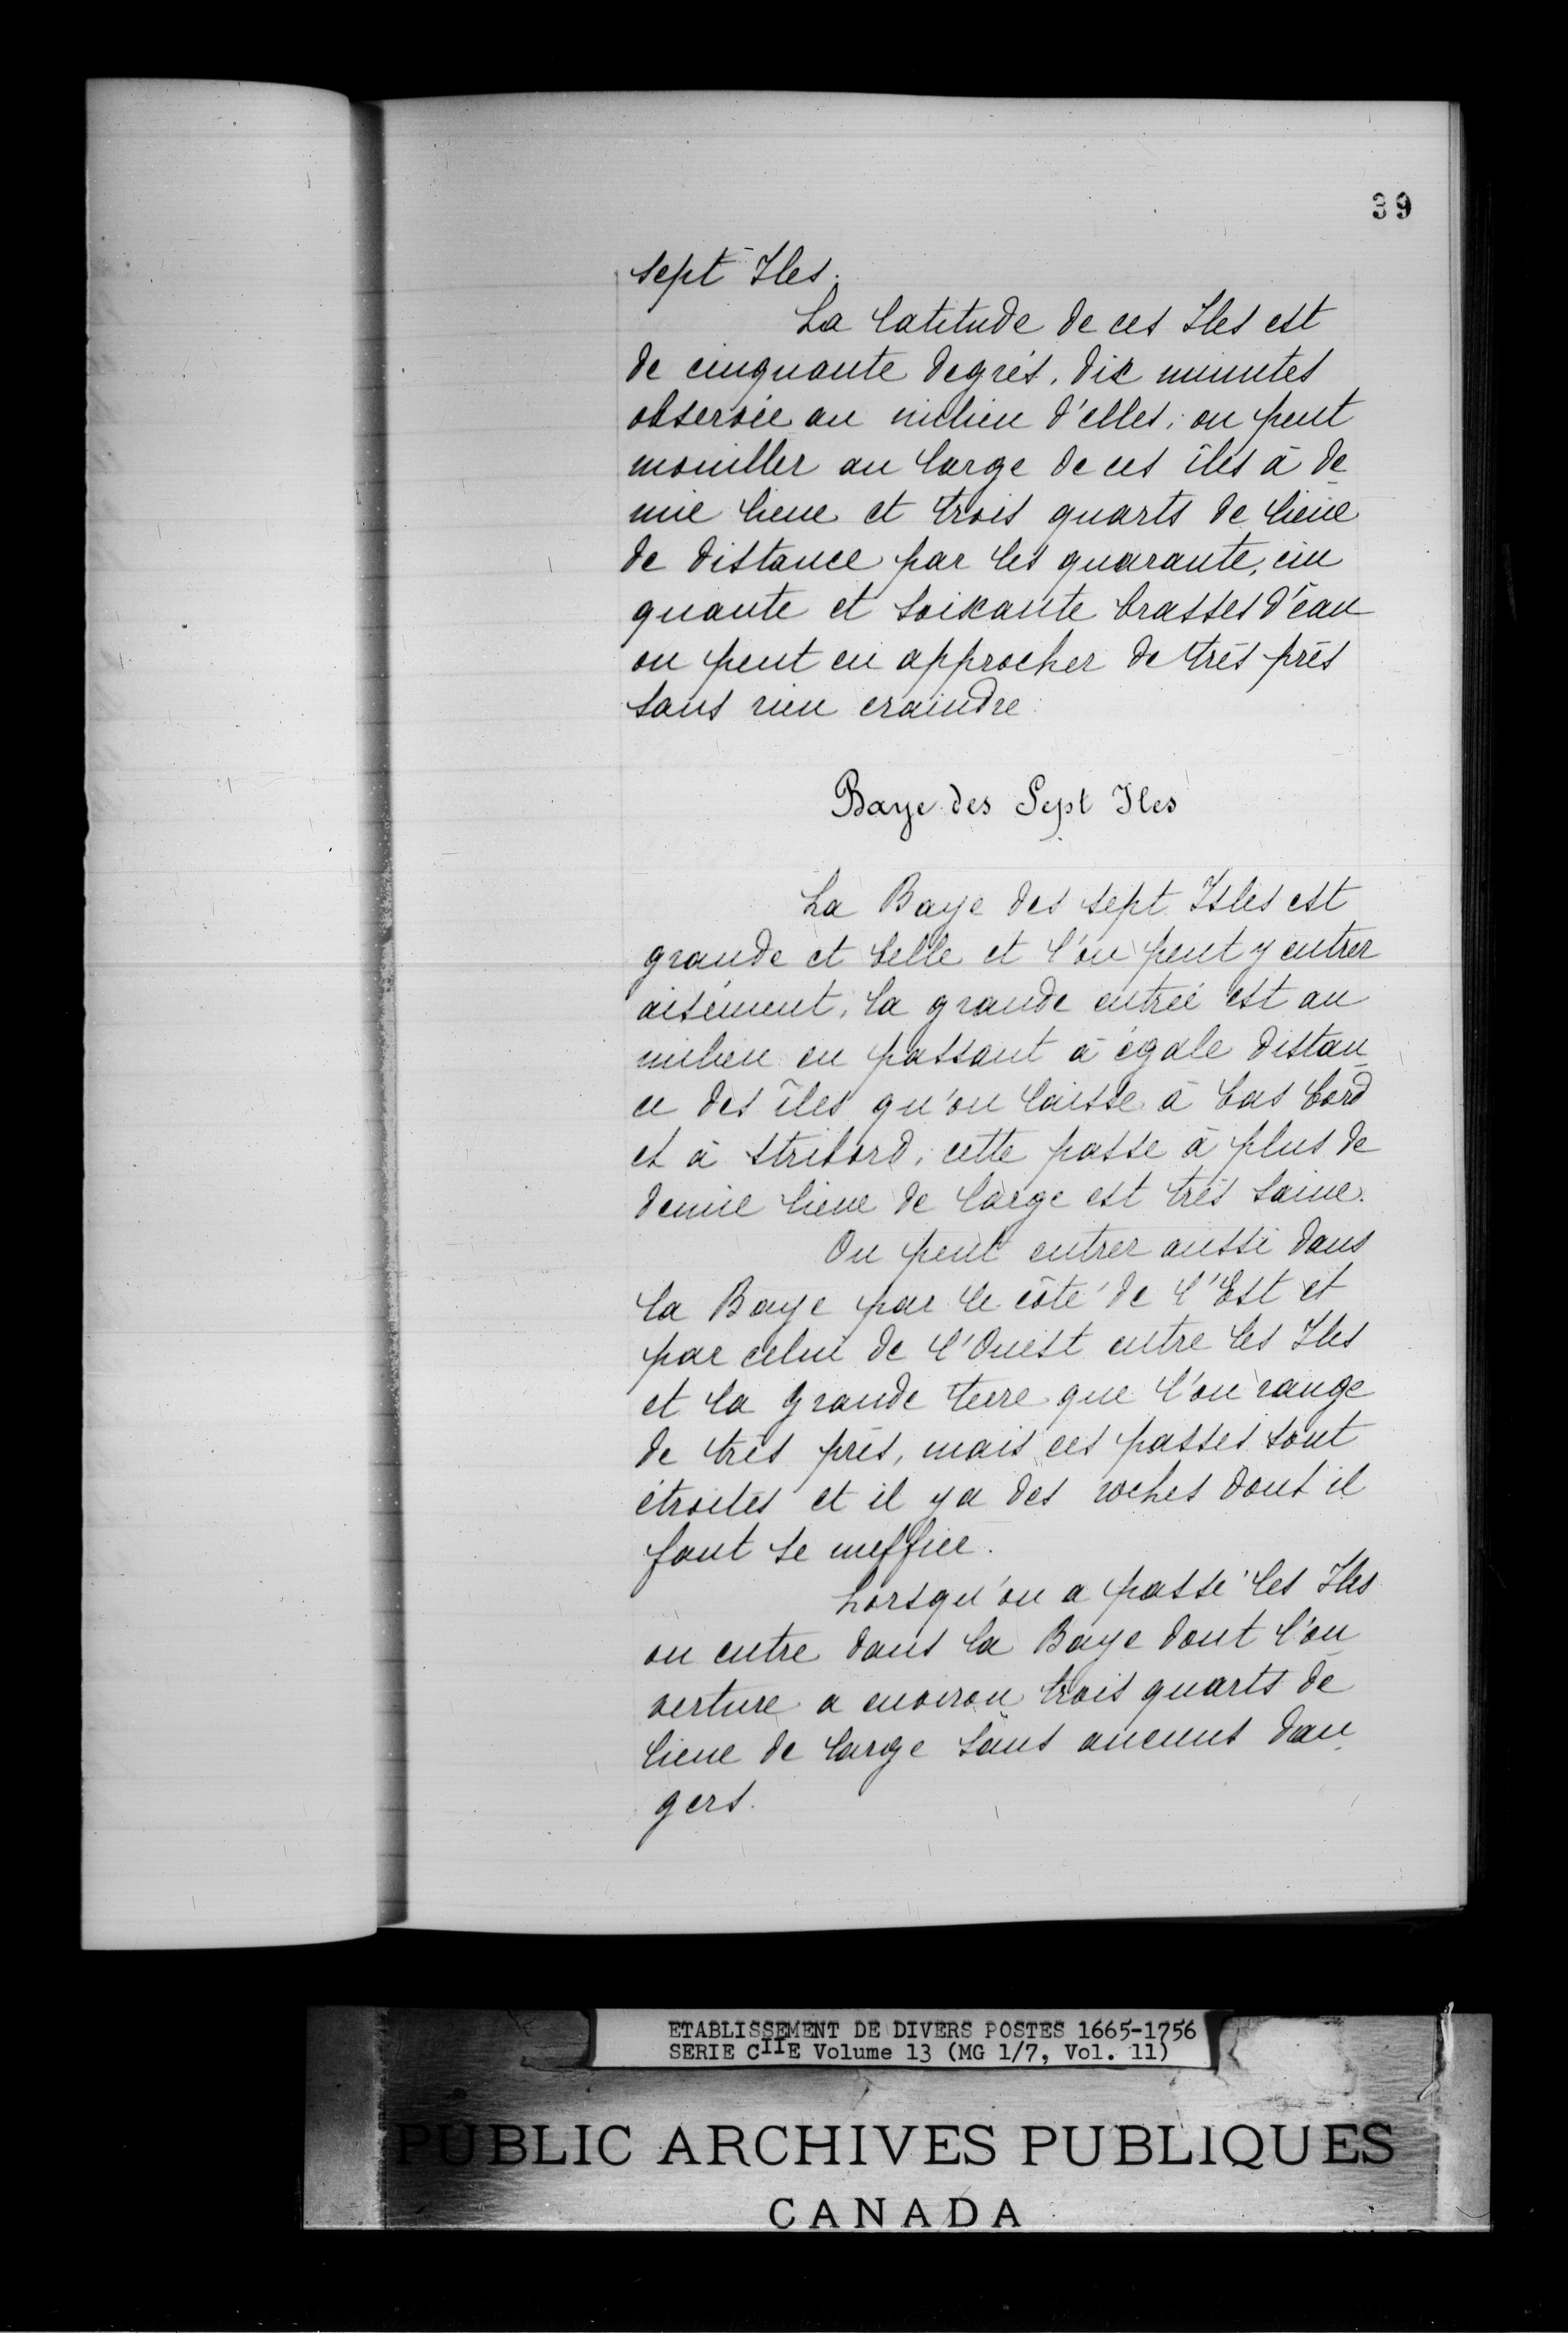 39
sept Iles.
La latitude de ces Iles est
de cinquante degrés, dix minutes
observée au milieu d'elles; on peut
mouiller au large de ces îles à de
mie lieue et trois quarts de lieue
de distance par les quarante, cin
quante et soixante brasses d'eau
on peut en approcher de très près
sans rien craindre.
Baye des Sept Iles
La Baye des sept Isles est
grande et belle et l'on peut y entrer
aisément, la grande entrée est au
milieu en passant à égale distan
ce des îles qu'on laisse à bas bord
et à stribord; cette passe à plus de
demie lieue de large est très saine.
On peut entrer aussi dans
la Baye par le côté de l'Est et
par celui de l'Ouest entre les Iles
et la grande terre que l'on range
de très près, mais ces passes sont
étroites et il y a des roches dont il
faut se meffier.
Lorsqu'on a passé les Iles
on entre dans la Baye dont l'ou
verture a environ trois quarts de
lieue de large sans aucuns dan
gers.
ETABLISSEMENT DE DIVERS POSTES 1665-1756
SERIE CIIE Volume 13 (MG 1/7, Vol. 11)
PUBLIC ARCHIVES PUBLIQUES
CANADA